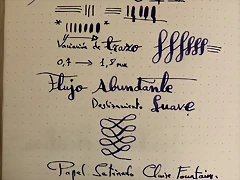 Variación de trazo
0,4 → 1,8 mm
Flujo Abundante
Deslizamiento Suave
Papel Satinado Claire Fountain.